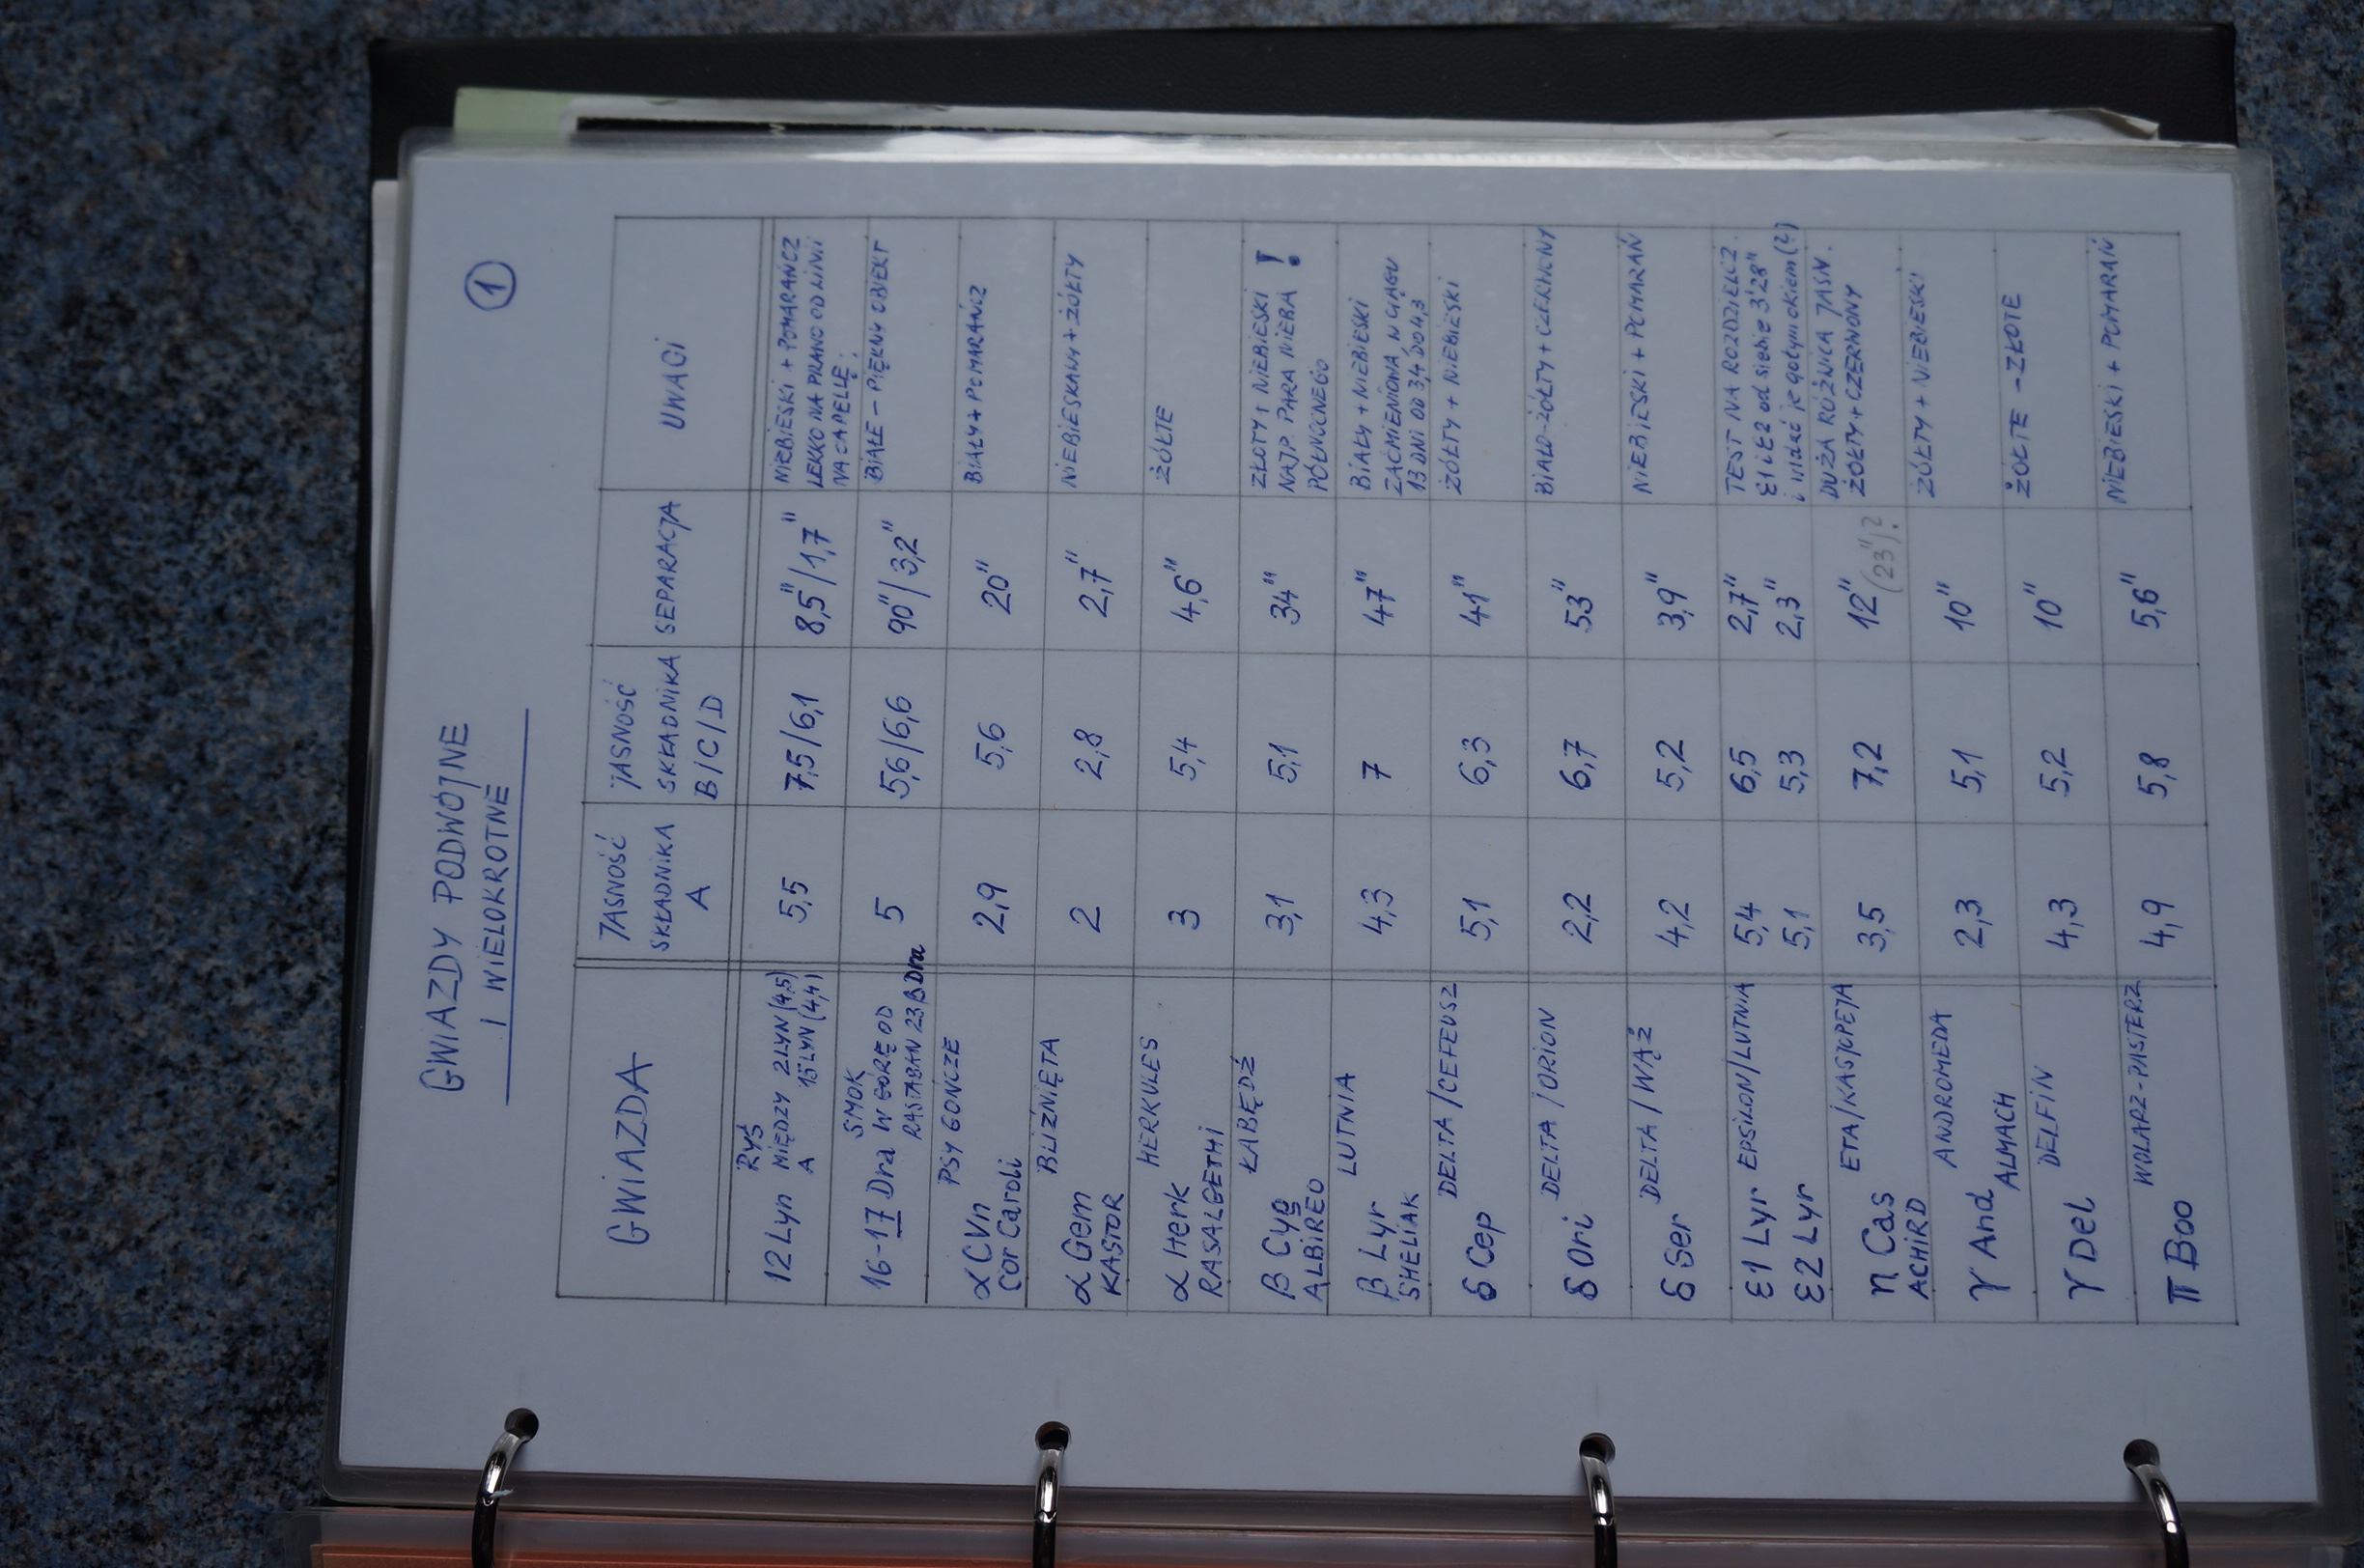 ①
GWIAZDY PODWÓJNE
I WIELOKROTNE
GWIAZDA
JASNOŚĆ
SKŁADNIKA
A
JASNOŚĆ
SKŁADNIKA
B/C/D
SEPARACJA
UWAGI
RYŚ
12 Lyn MIĘDZY 2LYN (4,5)
A 15LYN (4,4)
5,5
7,5/6,1
8,5"/1,7"
NIEBIESKI + POMARAŃCZ
LEKKO NA PRAWO OD LINII
NA CAPELLĘ.
SMOK
16-17 Dra W GÓRĘ OD
RASTABAN 23 β Dra
5
5,6/6,6
90"/3,2"
BIAŁE - PIĘKNY OBIEKT
PSY GOŃCZE
α CVn
Cor Caroli
2,9
5,6
20"
BIAŁY + POMARAŃCZ
BLIŹNIĘTA
α Gem
KASTOR
2
2,8
2,7"
NIEBIESKAWY + ŻÓŁTY
HERKULES
α Herk
RASALGETHI
3
5,4
4,6"
ŻÓŁTE
ŁABĘDŹ
β Cyg
ALBIREO
3,1
5,1
34"
ZŁOTY + NIEBIESKI
NAJP. PARA NIEBA !
PÓŁNOCNEGO
LUTNIA
β Lyr
SHELIAK
4,3
7
47"
BIAŁY + NIEBIESKI
ZAĆMIENIOWA W CIĄGU
13 DNI OD 3,4 DO 4,3
DELTA/CEFEUSZ
δ Cep
5,1
6,3
41"
ŻÓŁTY + NIEBIESKI
DELTA/ORION
δ Ori
2,2
6,7
53"
BIAŁO-ŻÓŁTY + CZERWONY
DELTA/WĄŻ
δ Ser
4,2
5,2
3,9"
NIEBIESKI + POMARAŃ
ε1 Lyr EPSILON/LUTNIA
ε2 Lyr
5,4
5,1
6,5
5,3
2,7"
2,3"
TEST NA ROZDZIELCZ.
ε1 i ε2 od siebie 3'28"
i widać je gołym okiem (?)
ETA/KASJOPEJA
η Cas
ACHIRD
3,5
7,2
12"
(23")?
DUŻA RÓŻNICA JASN.
ŻÓŁTY + CZERWONY
ANDROMEDA
γ And
ALMACH
2,3
5,1
10"
ŻÓŁTY + NIEBIESKI
DELFIN
γ Del
4,3
5,2
10"
ŻÓŁTE - ZŁOTE
WOLARZ-PASTERZ
π Boo
4,9
5,8
5,6"
NIEBIESKI + POMARAŃ